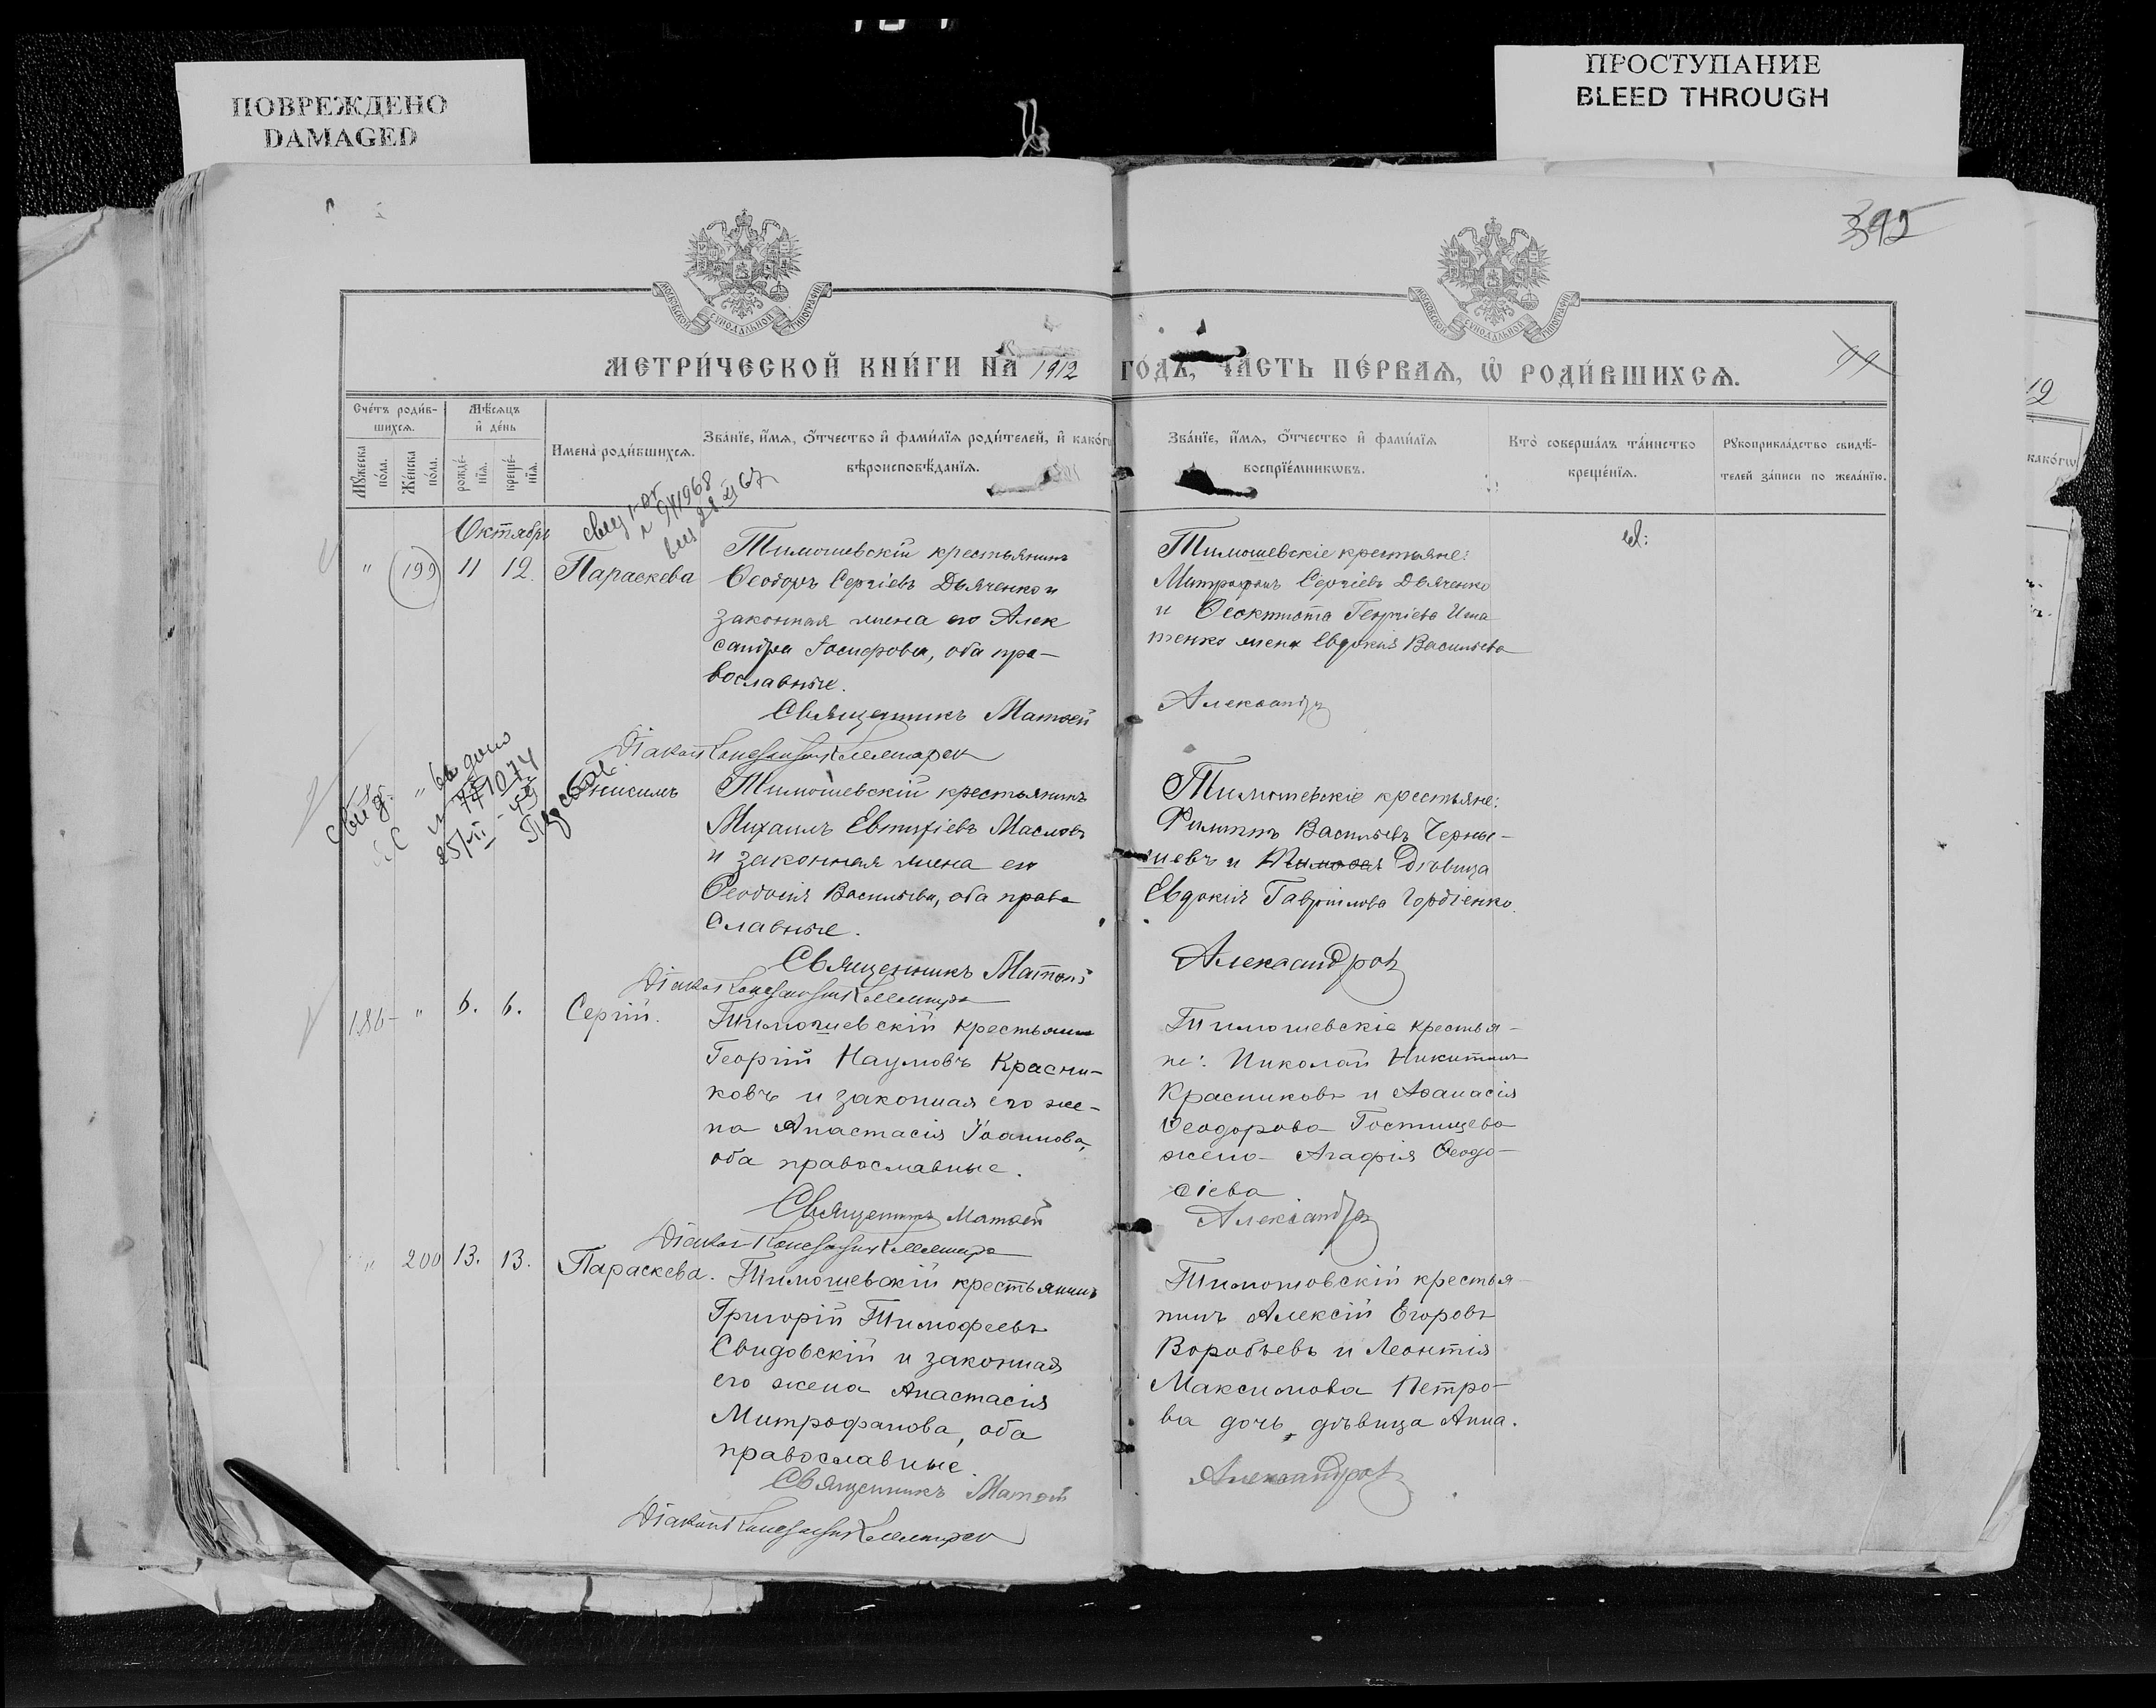 ПОВРЕЖДЕНО
DAMAGED
ПРОСТУПАНИЕ
BLEED THROUGH
395
МОСКОВСКОЙ СУНОДАЛЬНОЙ ТИПОГРАФІИ
МОСКОВСКОЙ СУНОДАЛЬНОЙ ТИПОГРАФІИ
МЕТРИ́ЧЕСКОЙ КНИ́ГИ НА 1912 ГО́ДЪ, ЧА́СТЬ ПЕ́РВАѦ, Ѡ҆ РОДИ́ВШИХСѦ.
Сче́тъ роди́в-
шихсѧ.
Мꙋ́жеска
по́ла.
Же́нска
по́ла.
Мѣ́сѧцъ
и҆ де́нь
рожде́-
нїѧ.
креще́-
нїѧ.
Имена̀ роди́вшихсѧ.
Зва́нїе, и҆́мѧ, ѻ҆́тчество и҆ фами́лїѧ роди́телей, и҆ како́гѡ
вѣроисповѣ́данїѧ.
Зва́нїе, и҆́мѧ, ѻ҆́тчество и҆ фами́лїѧ
воспрїе́мникѡвъ.
Кто̀ соверша́лъ та́инство
креще́нїѧ.
Рꙋкоприкла́дство свидѣ́-
телей за́писи по жела́нїю.
Октябрь
" 199 11 12. Параскева
Тимошевскій крестьянинъ
Ѳеодоръ Сергіевъ Дьяченко и
законная жена его Алек
сандра Іосифова, оба пра-
вославные.
Священникъ Матѳей
Діаконъ
Тимошевскіе крестьяне:
Митрофанъ Сергіевъ Дьяченко
и Ѳеоктиста Георгіева Игна
тенко жена Евдокія Васильева
Александров
Свид. выдано
25/VII
Онисимъ
Тимошевскій крестьянинъ
Михаилъ Евтихіевъ Масловъ
и законная жена его
Ѳеодосія Васильева, оба право
славные.
Священникъ Матѳей
Діаконъ
Тимошевскіе крестьяне:
Филиппъ Васильевъ Черны-
шевъ и дѣвица
Евдокія Гавріилова Гордіенко.
Александров
186 " 6. 6. Сергій.
Тимошевскій крестьянин
Георгій Наумовъ Красни-
ковъ и законная его же-
на Анастасія Іоаннова,
оба православные.
Священникъ Матѳей
Діаконъ
Тимошевскіе крестья-
не: Николай Никитинъ
Красниковъ и Аѳанасія
Ѳеодорова Гостищева
жена Агафія Ѳеодо-
сіева
Александров
" 200 13. 13. Параскева.
Тимошевскій крестьянинъ
Григорій Тимофеевъ
Свидовскій и законная
его жена Анастасія
Митрофанова, оба
православные.
Священникъ Матѳей
Діаконъ
Тимошовскій крестья-
нинъ Алексій Егоровъ
Воробьевъ и Леонтія
Максимова Петро-
ва дочь, дѣвица Анна.
Александров